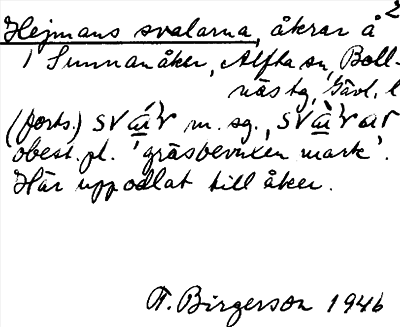 Hejmans svalarna, åkrar å 2
1 Sunnanåker, Alfta sn, Boll-
näs tg, Gävl. l
(forts.) svæ̀r m. sg., svæ̀rar
obest. pl. 'gräsbevuxen mark'.
Här uppodlat till åker.
F. Birgerson 1946